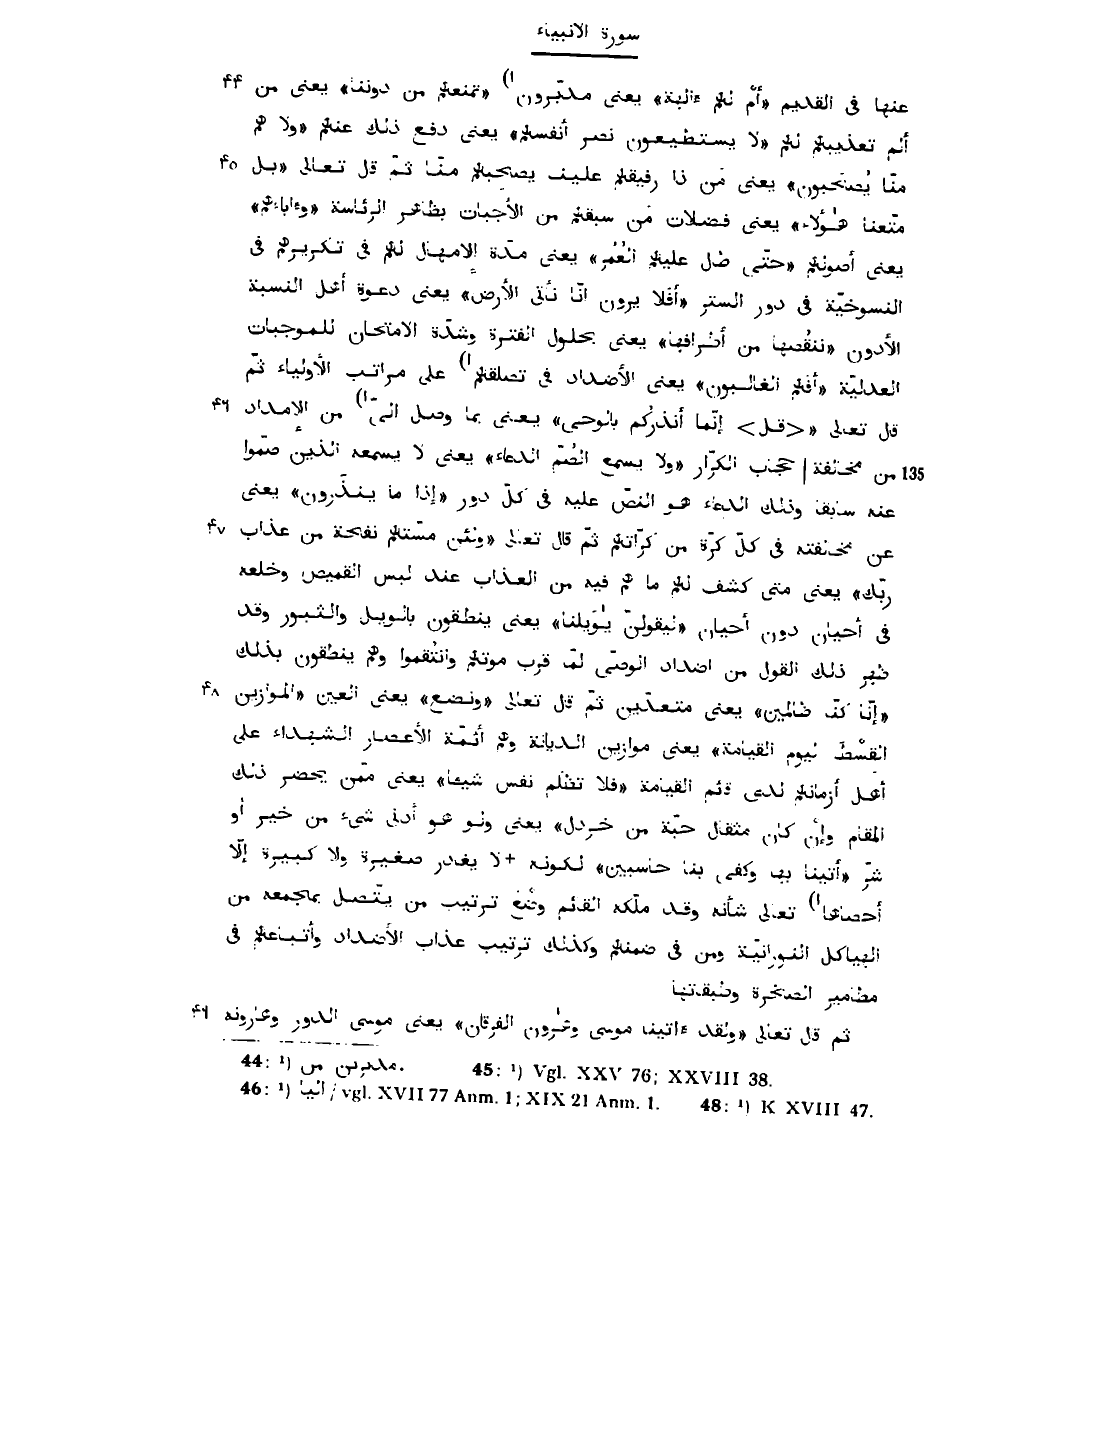 سورة الانبياء
عنها فى القديم «أَمْ لهم ءالهة» يعنى مدبّرون¹) «تمنعهم من دوننا» يعنى من ۴۴
ألم تعذيبهم لهم «لا يستطيعون نصر أنفسهم» يعنى دفع ذلك عنهم «ولا هم
منّا يُصْحَبون» يعنى مَن ذا رفيقهم عليـ يصحبهم منّا ثمّ قل تعالى «بل ۴۵
متّعنا هٰؤلاء» يعنى فضلات مَن سبقهم من الأجبات بظاهر الرئاسة «وءاباءهم»
يعنى أصولهم «حتّى طال عليهم العُمُر» يعنى مدّة الإمهال لهم فى تكريرهم فى
النسوخيّة فى دور الستر «أفلا يرون انّا نأتى الأرض» يعنى دعوة أهل النسبة
الأدون «ننقُصها من أطرافها» يعنى بحلول الفترة وشدّة الامتحان للموجبات
العدليّة «أفهم الغالبون» يعنى الأضداد فى تصلقهم¹) على مراتب الأولياء ثمّ
قل تعالى «<قل> إنّما أنذركُم بالوحى» يعنى بما وصل الىّ¹) من الإمداد ۴۶
135 من مخالفة | حجب الكرّار «ولا يسمع الصُمّ الدعاء» يعنى لا يسمعه الذين صمّوا
عنه سابقا وذلك الدعاء هو النصّ عليه فى كلّ دور «إذا ما ينذَرون» يعنى
عن مخالفته فى كلّ كرّة من كرّاتهم ثمّ قال تعالى «ولئن مسّتهم نفحة من عذاب ۴۷
ربّك» يعنى متى كشف لهم ما هم فيه من العذاب عند لبس القميص وخلعه
فى أحيان دون أحيان «ليقولنّ يٰوَيلنا» يعنى ينطقون بالويل والثبور وقد
ظهر ذلك القول من اضداد الوصّى لمّا قرب موتهم وانتُقموا وهم ينطقون بذلك
«إنّا كنّا ظالمين» يعنى متعدّين ثمّ قل تعالى «ونضع» يعنى العين «الموازين ۴۸
القسْط ليوم القيامة» يعنى موازين الديانة وهم أئمّة الأعصار الشهداء على
أهل أزمانهم لدى قائم القيامة «فلا تظلم نفس شيئا» يعنى ممّن يحضر ذلك
المقام وإنْ كان مثقال حبّة من خردل» يعنى ولو هو أدنى شىء من خير أو
شرّ «أتينا بها وكفى بنا حاسبين» لكونه +لا يغدر صغيرة ولا كبيرة إلّا
أحصاها¹) تعالى شأنه وقد ملّكه القائم وضْعَ ترتيب من يتّصل بمجمعه من
الهياكل النورانيّة ومن فى ضمنهم وكذلك ترتيب عذاب الأضداد وأتباعهم فى
مطامير الصخرة وطبقتها
ثم قل تعالى «ولقد ءاتينا موسى وهٰرون الفرقان» يعنى موسى الدور وهارونه ۴۹
44: ¹) مدبرين من. 45: ¹) Vgl. XXV 76; XXVIII 38.
46: ¹) الينا / vgl. XVII 77 Anm. 1; XIX 21 Anm. 1. 48: ¹) K XVIII 47.